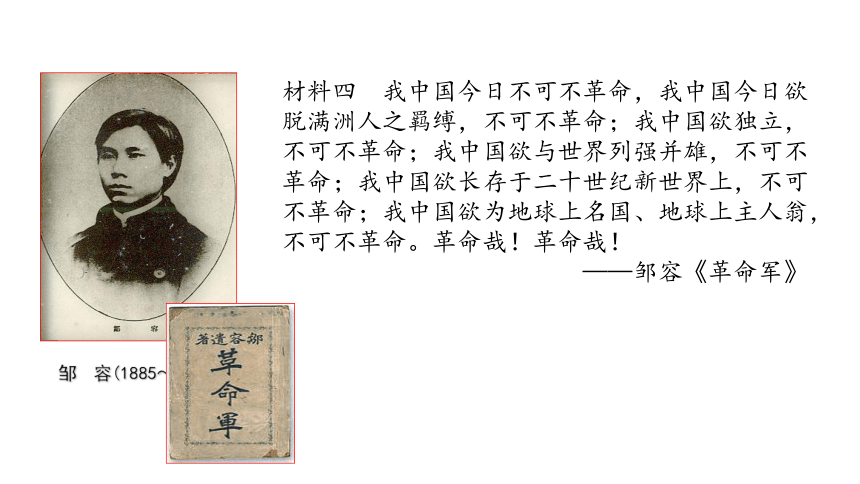 材料四　我中国今日不可不革命，我中国今日欲
脱满洲人之羁缚，不可不革命；我中国欲独立，
不可不革命；我中国欲与世界列强并雄，不可不
革命；我中国欲长存于二十世纪新世界上，不可
不革命；我中国欲为地球上名国、地球上主人翁，
不可不革命。革命哉！革命哉！
——邹容《革命军》
鄒　容
邹　容(1885~
著遺容鄒
革命軍